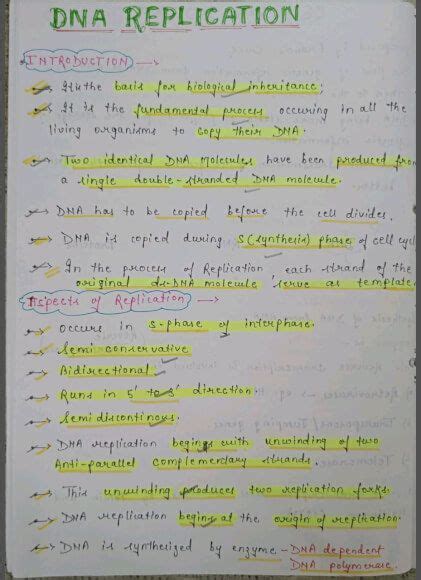 DNA REPLICATION
INTRODUCTION →
→ It is the basis for biological inheritance.
→ It is the fundamental process occuring in all the
living organisms to copy their DNA.
→ Two identical DNA Molecules have been produced from
a single double-stranded DNA molecule.
→ DNA has to be copied before the cell divides.
→ DNA is copied during S(synthesis) phase of cell cycle
→ In the process of Replication, each strand of the
original ds-DNA molecule, serve as template
Aspects of Replication →
→ Occurs in S-phase of interphase.
→ Semi conservative
→ Bidirectional
→ Runs in 5' to 3' direction.
→ Semi discontinous.
→ DNA replication begins with unwinding of two
Anti-parallel complementary strands.
→ This unwinding produces two replication forks.
→ DNA replication begins at the origin of replication.
→ DNA is synthesized by enzyme - DNA dependent
DNA polymerase.